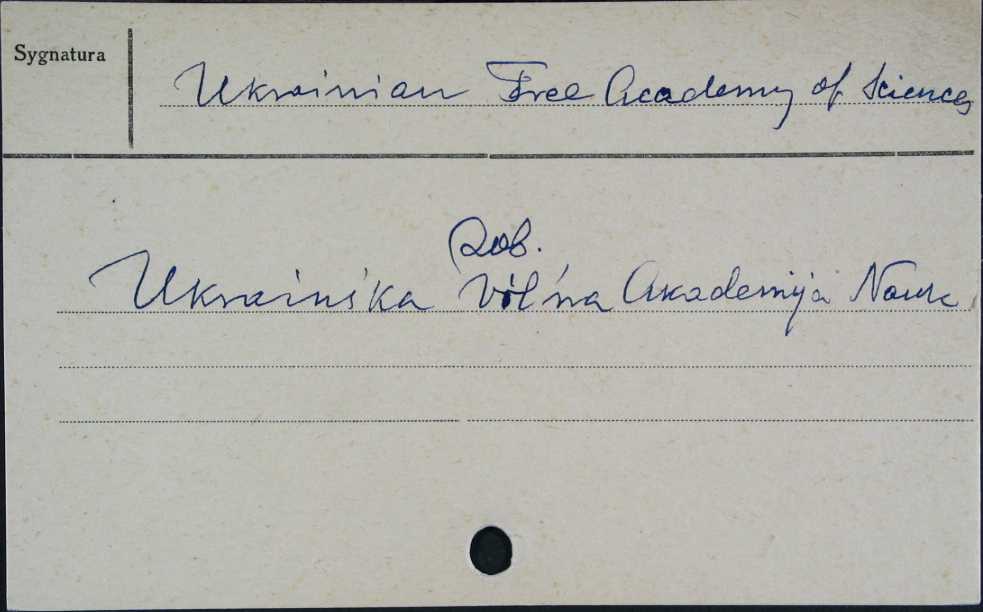 Sygnatura
Ukrainian Free Academy of Sciences
Zob.
Ukrains'ka Vil'na Akademija Nauk